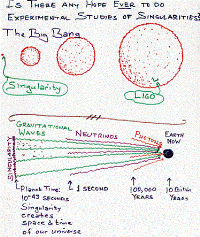 IS THERE ANY HOPE EVER TO DO
EXPERIMENTAL STUDIES OF SINGULARITIES?
The Big Bang
Singularity
LIGO
GRAVITATIONAL
WAVES
NEUTRINOS
PHOTONS
EARTH
NOW
SINGULARITY
Planck Time:
10-43 SECONDS
1 SECOND
100,000
YEARS
10 Billion
YEARS
Singularity
creates
space & time
of our universe